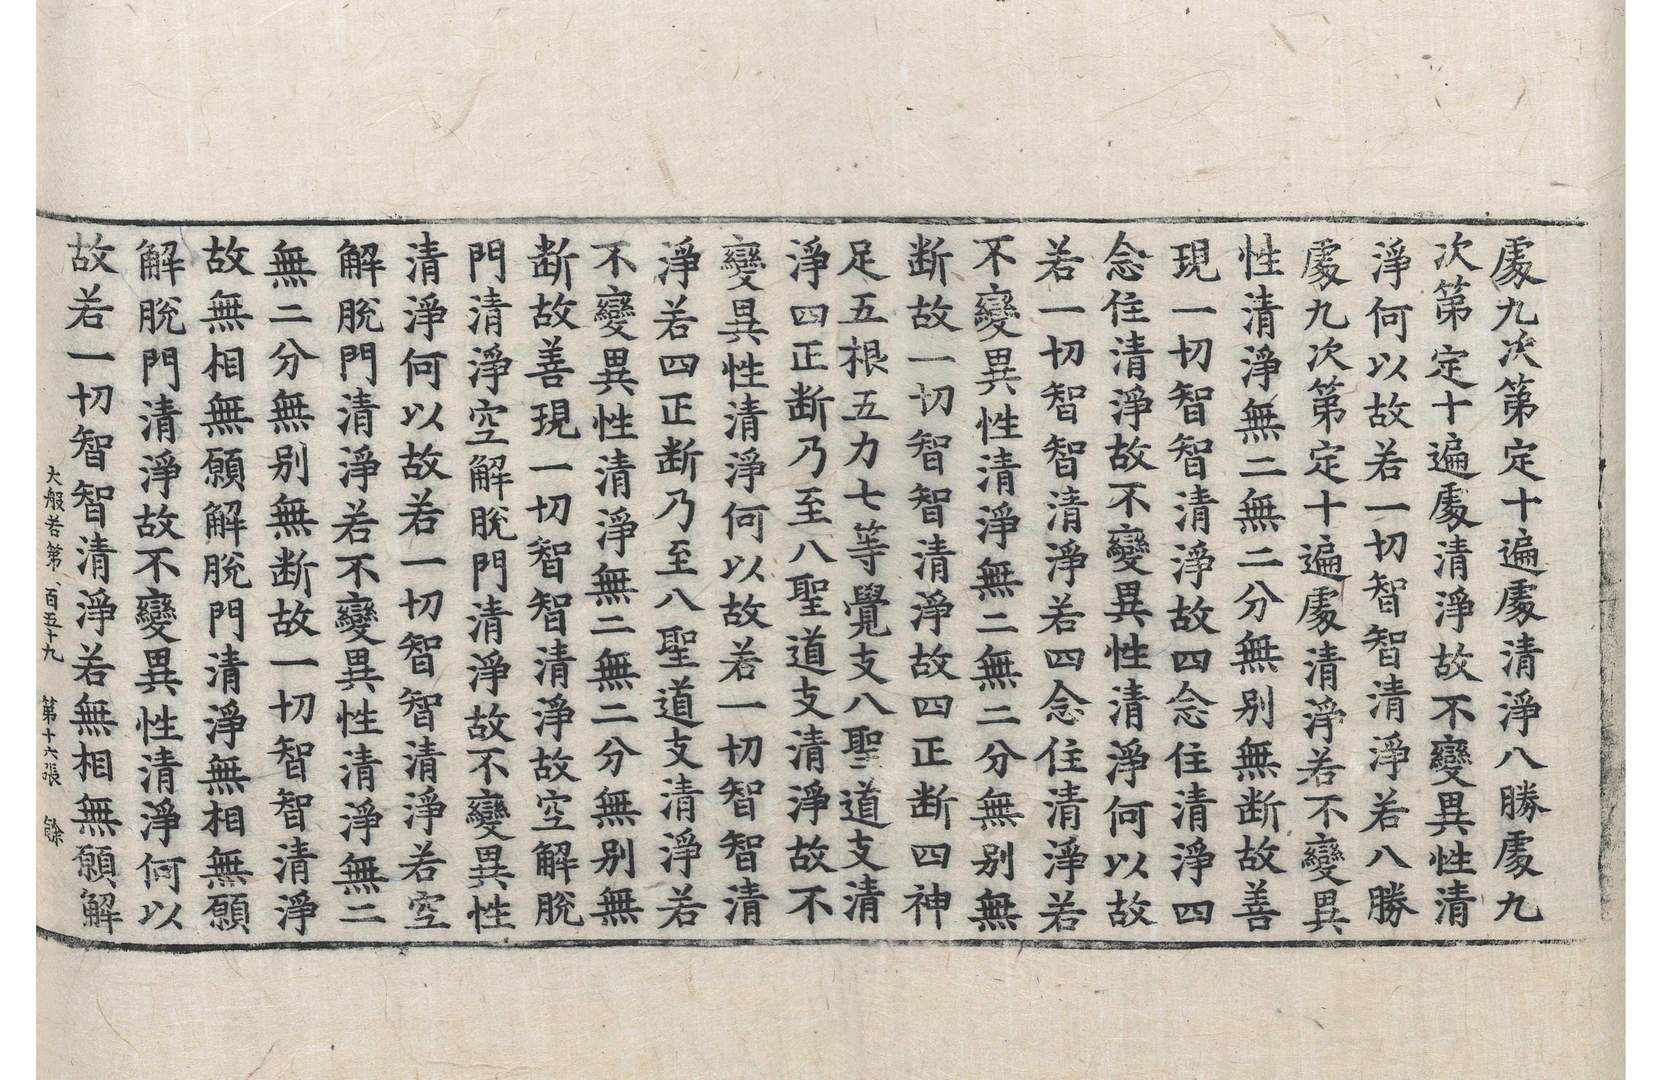 處九次第定十遍處清淨八勝處九
次第定十遍處清淨故不變異性清
淨何以故若一切智智清淨若八勝
處九次第定十遍處清淨若不變異
性清淨無二無二分無别無断故善
現一切智智清淨故四念住清淨四
念住清淨故不變異性清淨何以故
若一切智智清淨若四念住清淨若
不變異性清淨無二無二分無别無
断故一切智智清淨故四正断四神
足五根五力七等覺支八聖道支清
淨四正断乃至八聖道支清淨故不
變異性清淨何以故若一切智智清
淨若四正断乃至八聖道支清淨若
不變異性清淨無二無二分無别無
断故善現一切智智清淨故空解脫
門清淨空解脫門清淨故不變異性
清淨何以故若一切智智清淨若空
解脫門清淨若不變異性清淨無二
無二分無别無断故一切智智清淨
故無相無願解脫門清淨無相無願
解脫門清淨故不變異性清淨何以
故若一切智智清淨若無相無願解
大般若第百五十九 第十六張 餘